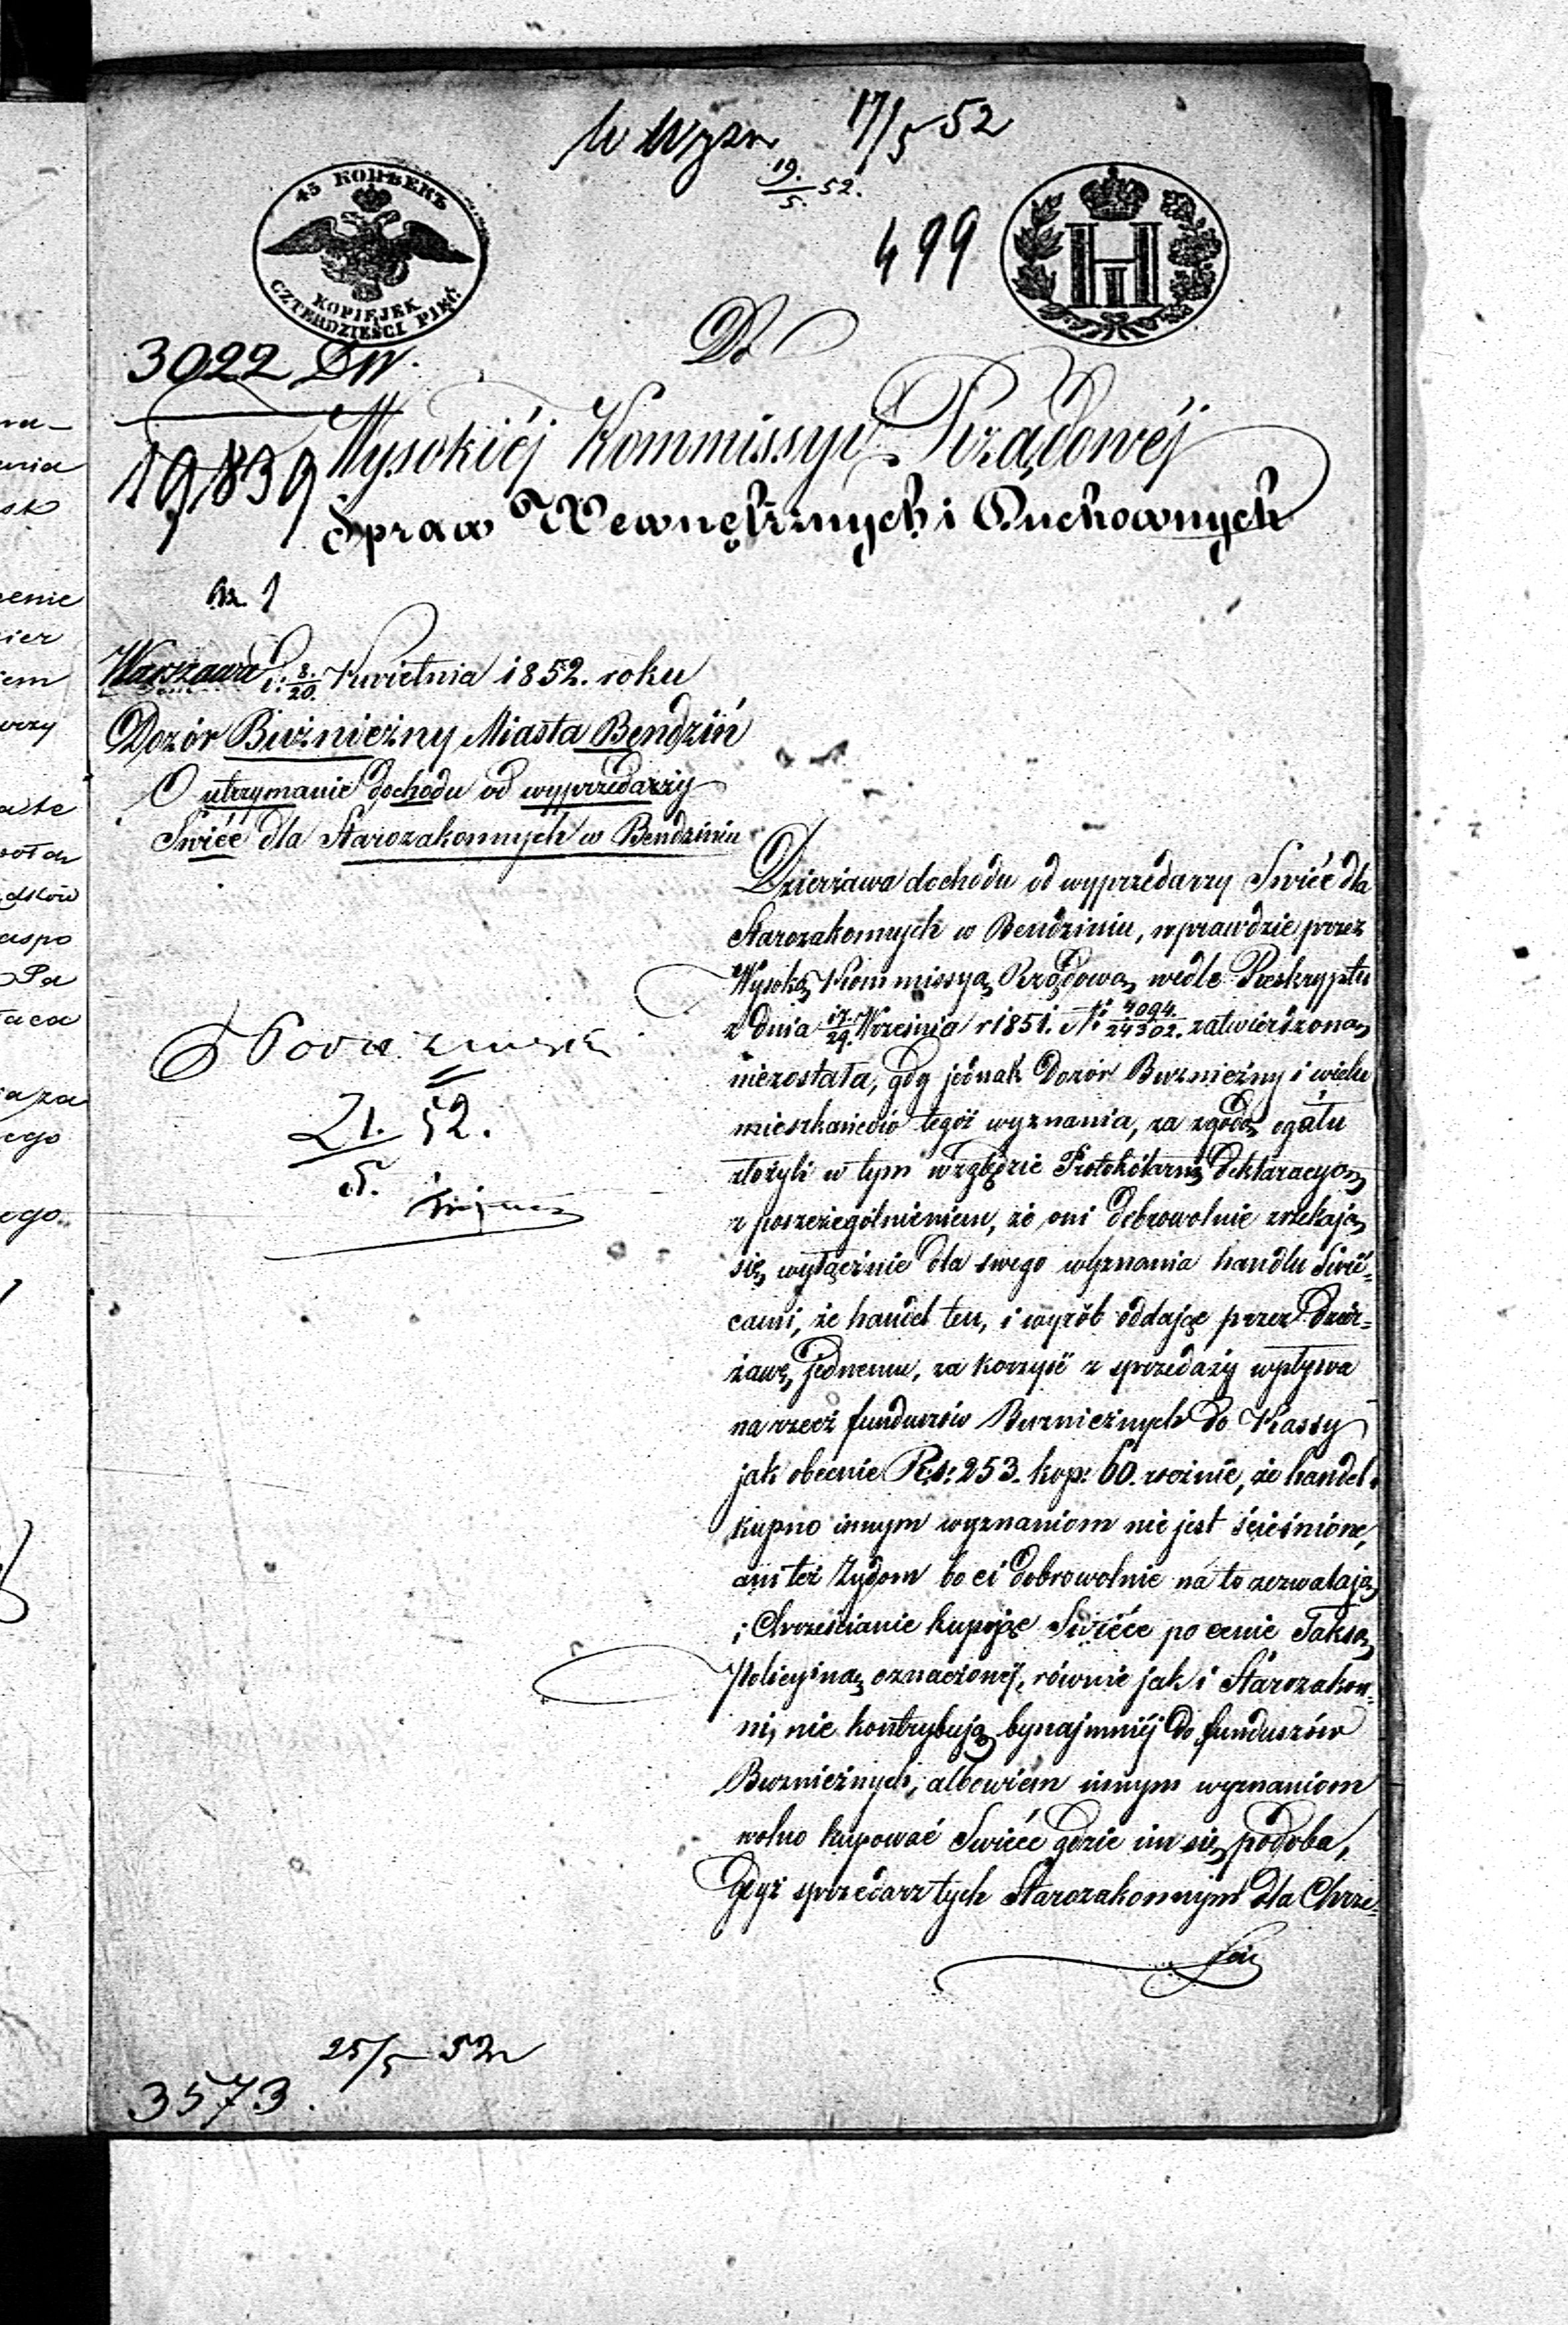 17/5 52
19./5. 52.
499
45 КОПѢЕКЪ
KOPIEJEK
CZTERDZIEŚCI PIĘĆ
3022 DW.
19839
Do
Wysokiéj Kommissyi Rządowéj
Spraw Wewnętrznych i Duchownych
Nr. 1
Warszawa d: 8./20. Kwietnia 1852. roku
Dozór Buźnieźny Miasta Bendziń
O utrzymanie dochodu od wyprzedarzy
Świéc dla Starozakonnych w Bendziniu
Dzierżawa dochodu od wyprzedarzy Swiéc dla
Starozakonnych w Bendziniu, wprawdzie przez
Wysoką Kommissyą Rządową wedle Reskryptu
z dnia 17./29. Wrzesnia r 1851. Nr 4094./24302. zatwierdzoną
niezostała, gdy jednak Dozór Buznieźny i wielu
mieszkańców tegoż wyznania, za zgodą ogółu
złożyli w tym względzie Protokólarną deklaracyą
z poszczególnieniem, że oni dobrowolnie zrzekają
się, wyłącznie dla swego wyznania handlu Swié-
cami, że handel ten, i wyrób oddając przez dzier-
żawę, jednemu, za korzyść z sprzedaży wpływa
na rzecz funduszów Buznieźnych do Kassy
jak obecnie R.s: 253. kop: 60. rocznie, że handel
kupno innym wyznaniom nie jest ścieśnione,
ani też Żydom bo ci dobrowolnie na to zezwalają
i Chrześcianie kupując Swiéce po cenie Taksą
Policyiną oznaczonéj, równie jak i Starozakon-
ni, nie kontrybują bynajmniéj do funduszów
Buznieźnych, albowiem innym wyznaniom
wolno kupować Swiéce gdzie im się podoba,
Gdyż sprzedarz tych Starozakonnym dla Chrze-
ści
21./5. 52.
25/5 52
3573.